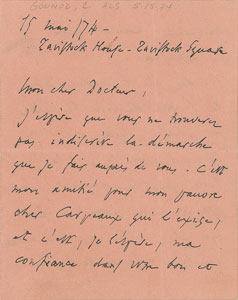 GOUNOD, C ALS 5.15.74
15 mai /74 -
Tavistock House - Tavistock Square
Mon cher Docteur,
J'espère que vous ne trouverez
pas indiscrète la démarche
que je fais auprès de vous. C'est
mon amitié pour mon pauvre
cher Carpeaux qui l'exige,
et c'est, je l'espère, ma
confiance dans votre bon et